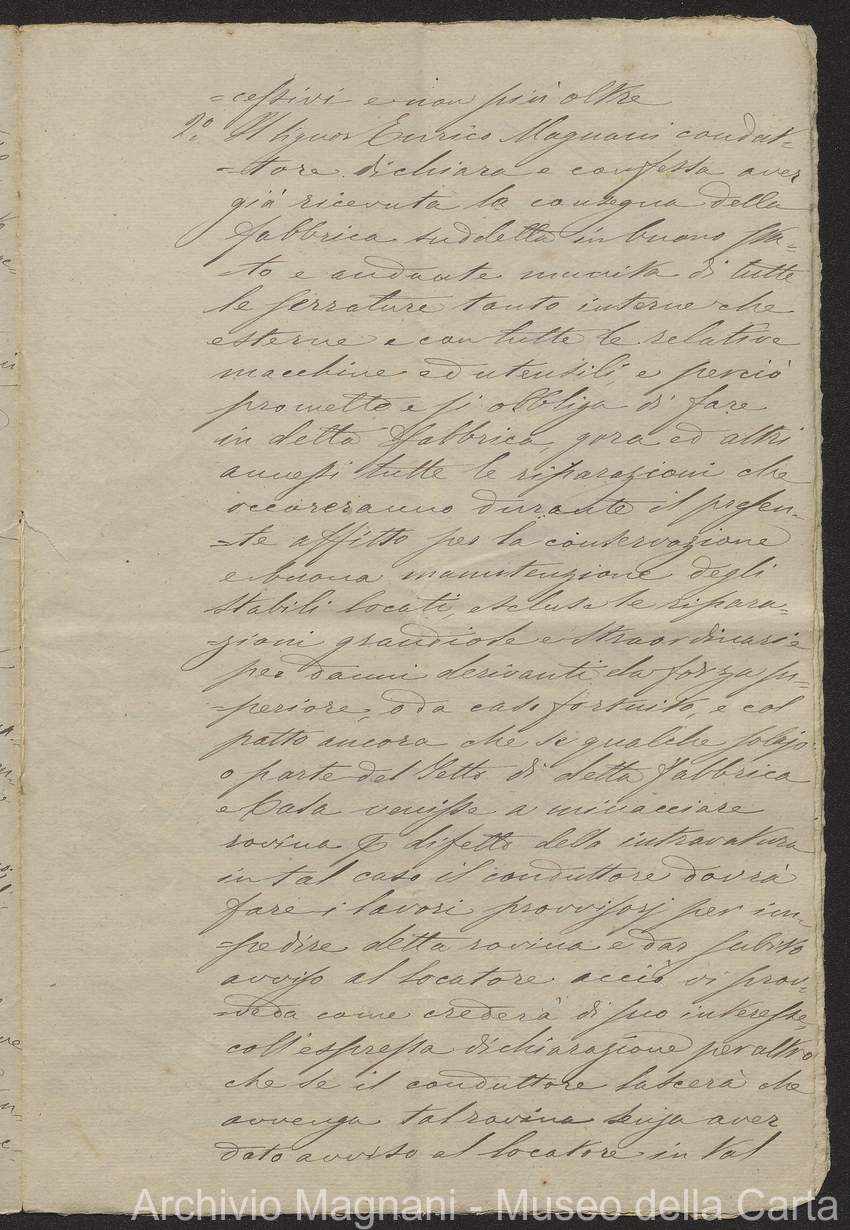 =cessivi e non più oltre
2.° Il signor Enrico Magnani condut=
=tore dichiara e confessa aver
già ricevuta la consegna della
fabbrica suddetta in buono sta=
=to e andante munita di tutte
le serrature tanto interne che
esterne e con tutte le relative
macchine ed utensili, e perciò
promette e si obbliga di fare
in detta fabbrica, gora ed altri
annessi tutte le riparazioni che
occorreranno durante il presen=
=te affitto per la conservazione
e buona manutenzione degli
stabili locati, escluse le ripara=
=zioni grandiose e straordinarie
per danni derivanti da forza su=
=periore, o da caso fortuito, e col
patto ancora che se qualche
o parte del Tetto di detta fabbrica
e Casa venisse a minacciare
rovina p difetto della intravatura
in tal caso il conduttore dovrà
fare i lavori provvisorj per im=
=pedire detta rovina e dar subito
avviso al locatore acciò vi prov=
=veda come crederà di suo interesse,
coll'espressa dichiarazione per altro
che se il conduttore lascerà che
avvenga tal rovina senza aver
dato avviso al locatore in tal
Archivio Magnani - Museo della Carta